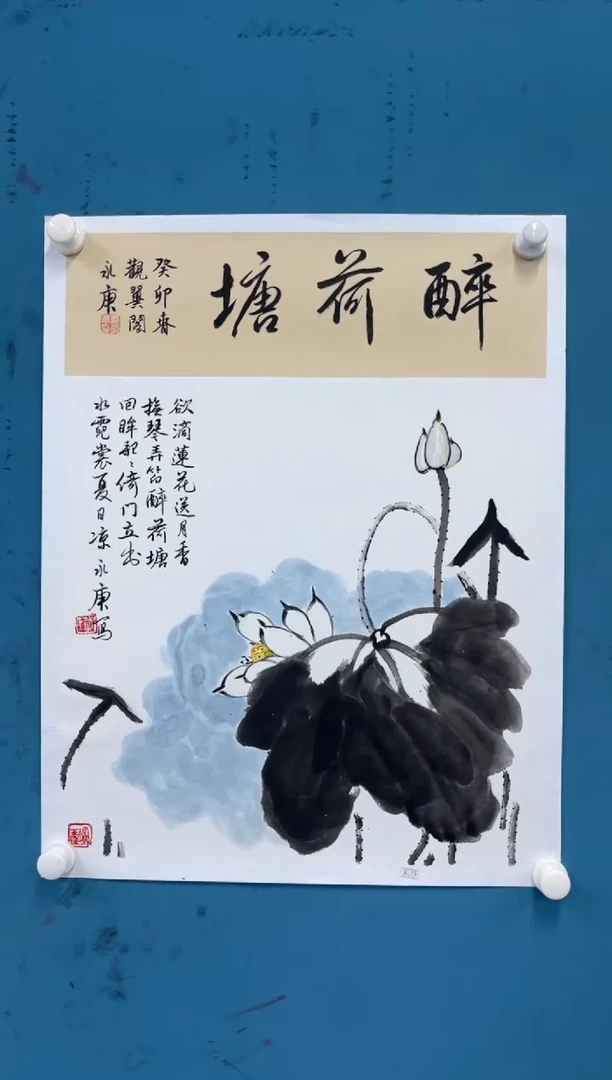 醉荷塘
癸卯春
觀翼閣
永庚
欲滴蓮花送月香
撫琴弄笛醉荷塘
回眸飛飛倚門立
水霓裳夏日凉 永庚寫